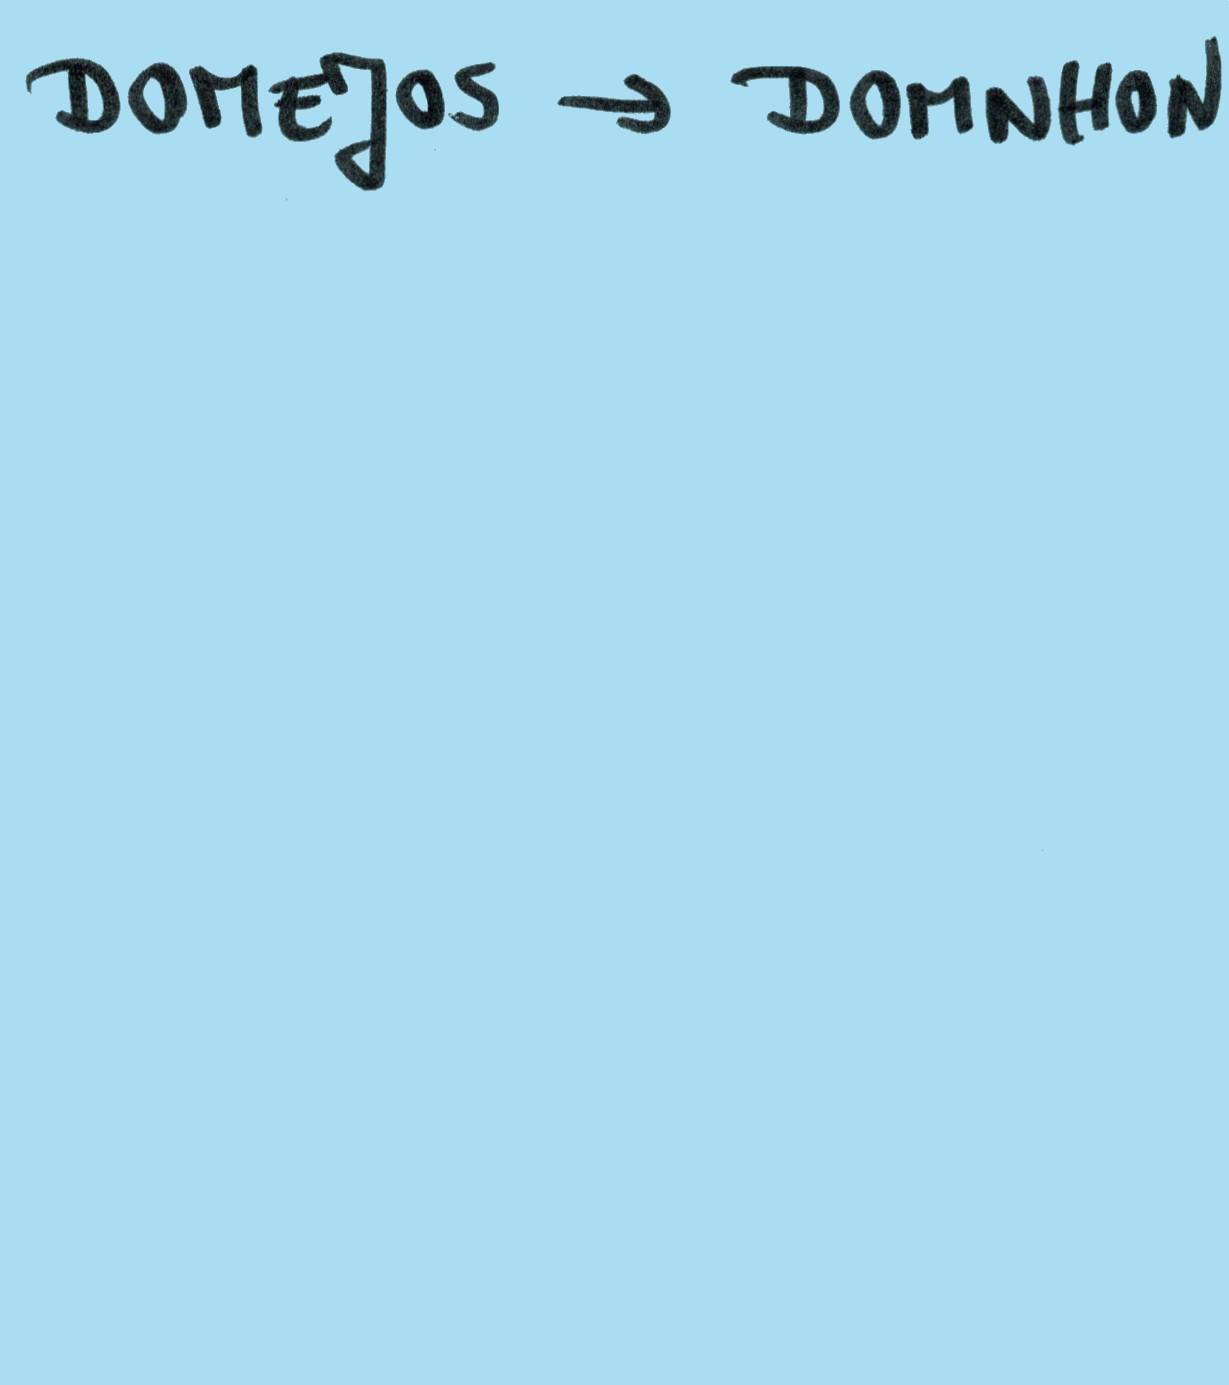 DOMEJOS → DOMNHON